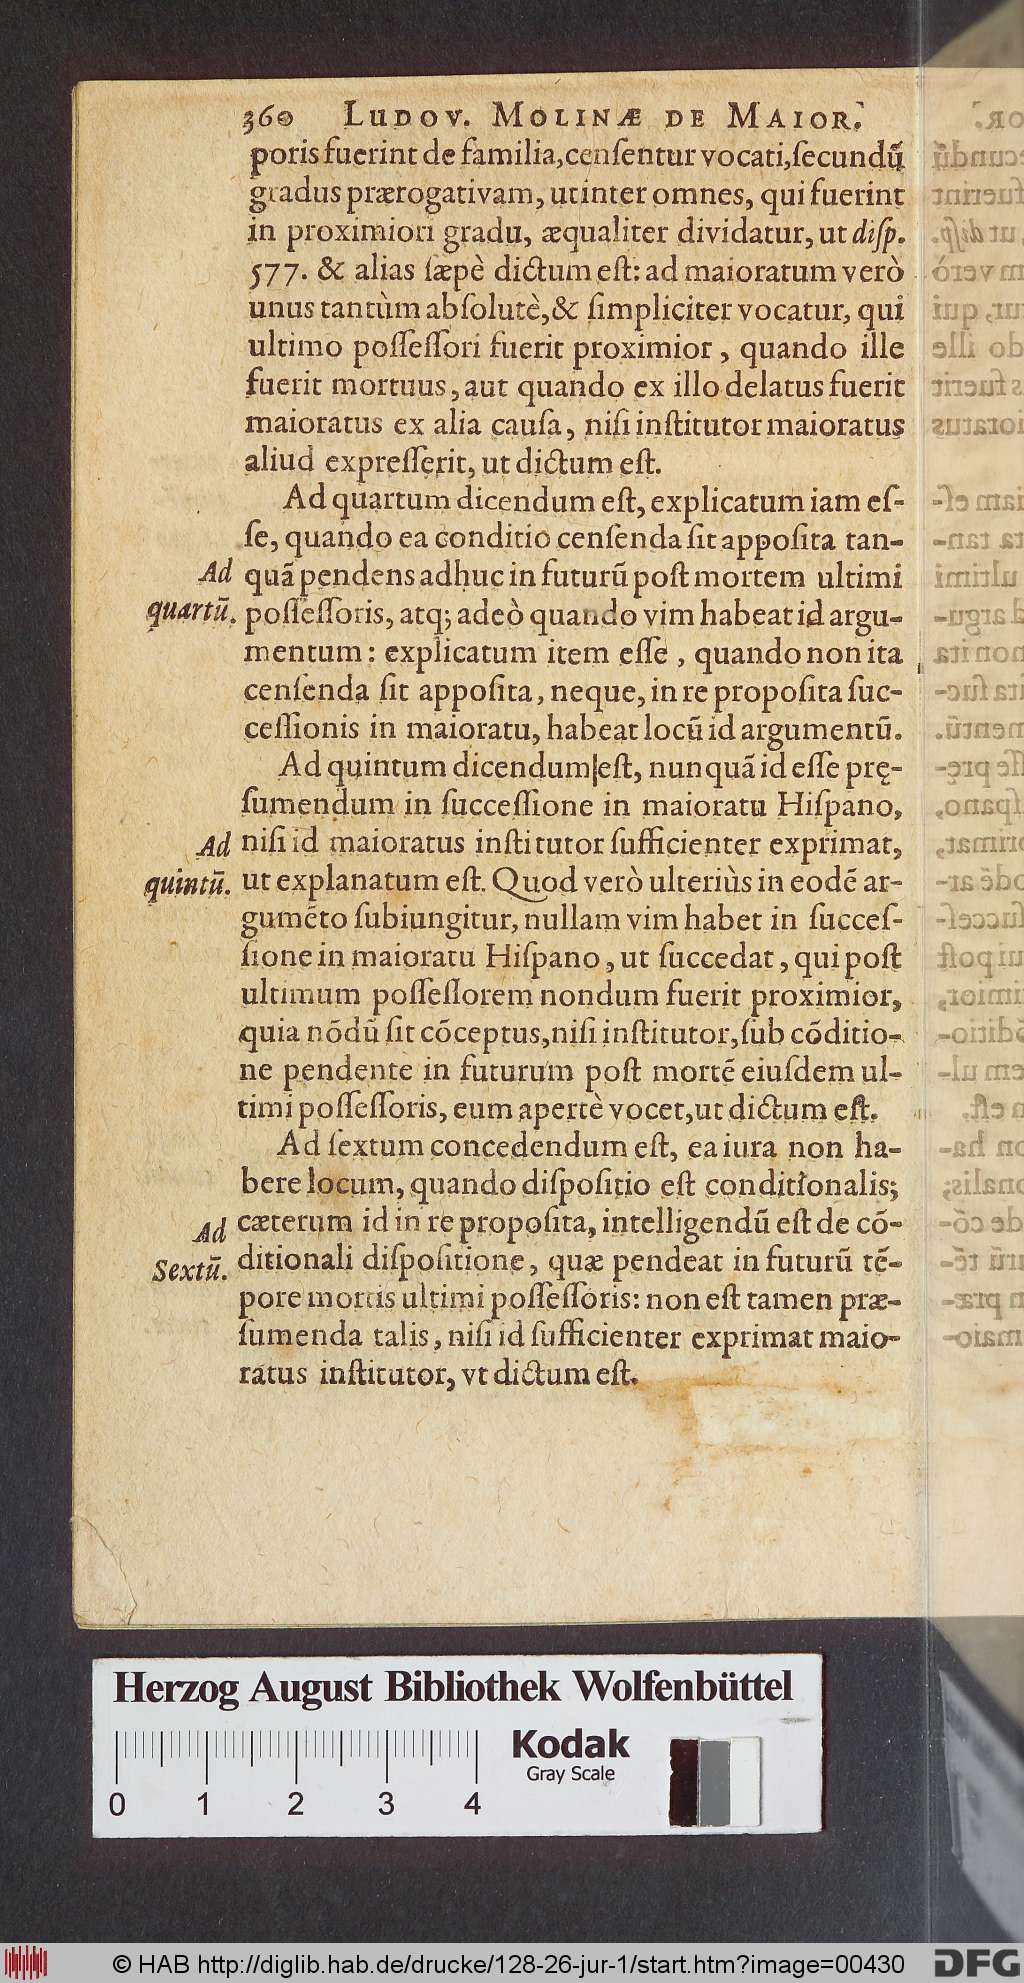 360 LUDOV. MOLINÆ DE MAIOR.
poris fuerint de familia, cenſentur vocati, ſecundũ
gradus prærogativam, ut inter omnes, qui fuerint
in proximiori gradu, æqualiter dividatur, ut diſp.
577. & alias ſæpè dictum eſt: ad maioratum verò
unus tantùm abſolutè, & ſimpliciter vocatur, qui
ultimo poſſeſſori fuerit proximior, quando ille
fuerit mortuus, aut quando ex illo delatus fuerit
maioratus ex alia cauſa, niſi inſtitutor maioratus
aliud expreſſerit, ut dictum eſt.
Ad quartum dicendum eſt, explicatum iam eſ-
ſe, quando ea conditio cenſenda ſit appoſita tan-
Ad
quartũ.
quã pendens adhuc in futurũ poſt mortem ultimi
poſſeſſoris, atq; adeò quando vim habeat id argu-
mentum: explicatum item eſſe, quando non ita
cenſenda ſit appoſita, neque, in re propoſita ſuc-
ceſſionis in maioratu, habeat locũ id argumentũ.
Ad quintum dicendum|eſt, nunquã id eſſe prę-
ſumendum in ſucceſſione in maioratu Hiſpano,
Ad
quintũ.
niſi id maioratus inſtitutor ſufficienter exprimat,
ut explanatum eſt. Quod verò ulteriùs in eodẽ ar-
gumẽto ſubiungitur, nullam vim habet in ſucceſ-
ſione in maioratu Hiſpano, ut ſuccedat, qui poſt
ultimum poſſeſſorem nondum fuerit proximior,
quia nõdũ ſit cõceptus, niſi inſtitutor, ſub cõditio-
ne pendente in futurum poſt mortẽ eiuſdem ul-
timi poſſeſſoris, eum apertè vocet, ut dictum eſt.
Ad ſextum concedendum eſt, ea iura non ha-
bere locum, quando diſpoſitio eſt conditionalis;
Ad
Sextũ.
cæterum id in re propoſita, intelligendũ eſt de cõ-
ditionali diſpoſitione, quæ pendeat in futurũ tẽ-
pore mortis ultimi poſſeſſoris: non eſt tamen præ-
ſumenda talis, niſi id ſufficienter exprimat maio-
ratus inſtitutor, vt dictum eſt.
Herzog August Bibliothek Wolfenbüttel
Kodak
Gray Scale
0 1 2 3 4
© HAB http://diglib.hab.de/drucke/128-26-jur-1/start.htm?image=00430
DFG